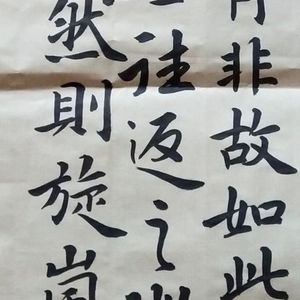 非故如此
往返之
然則旋嵐